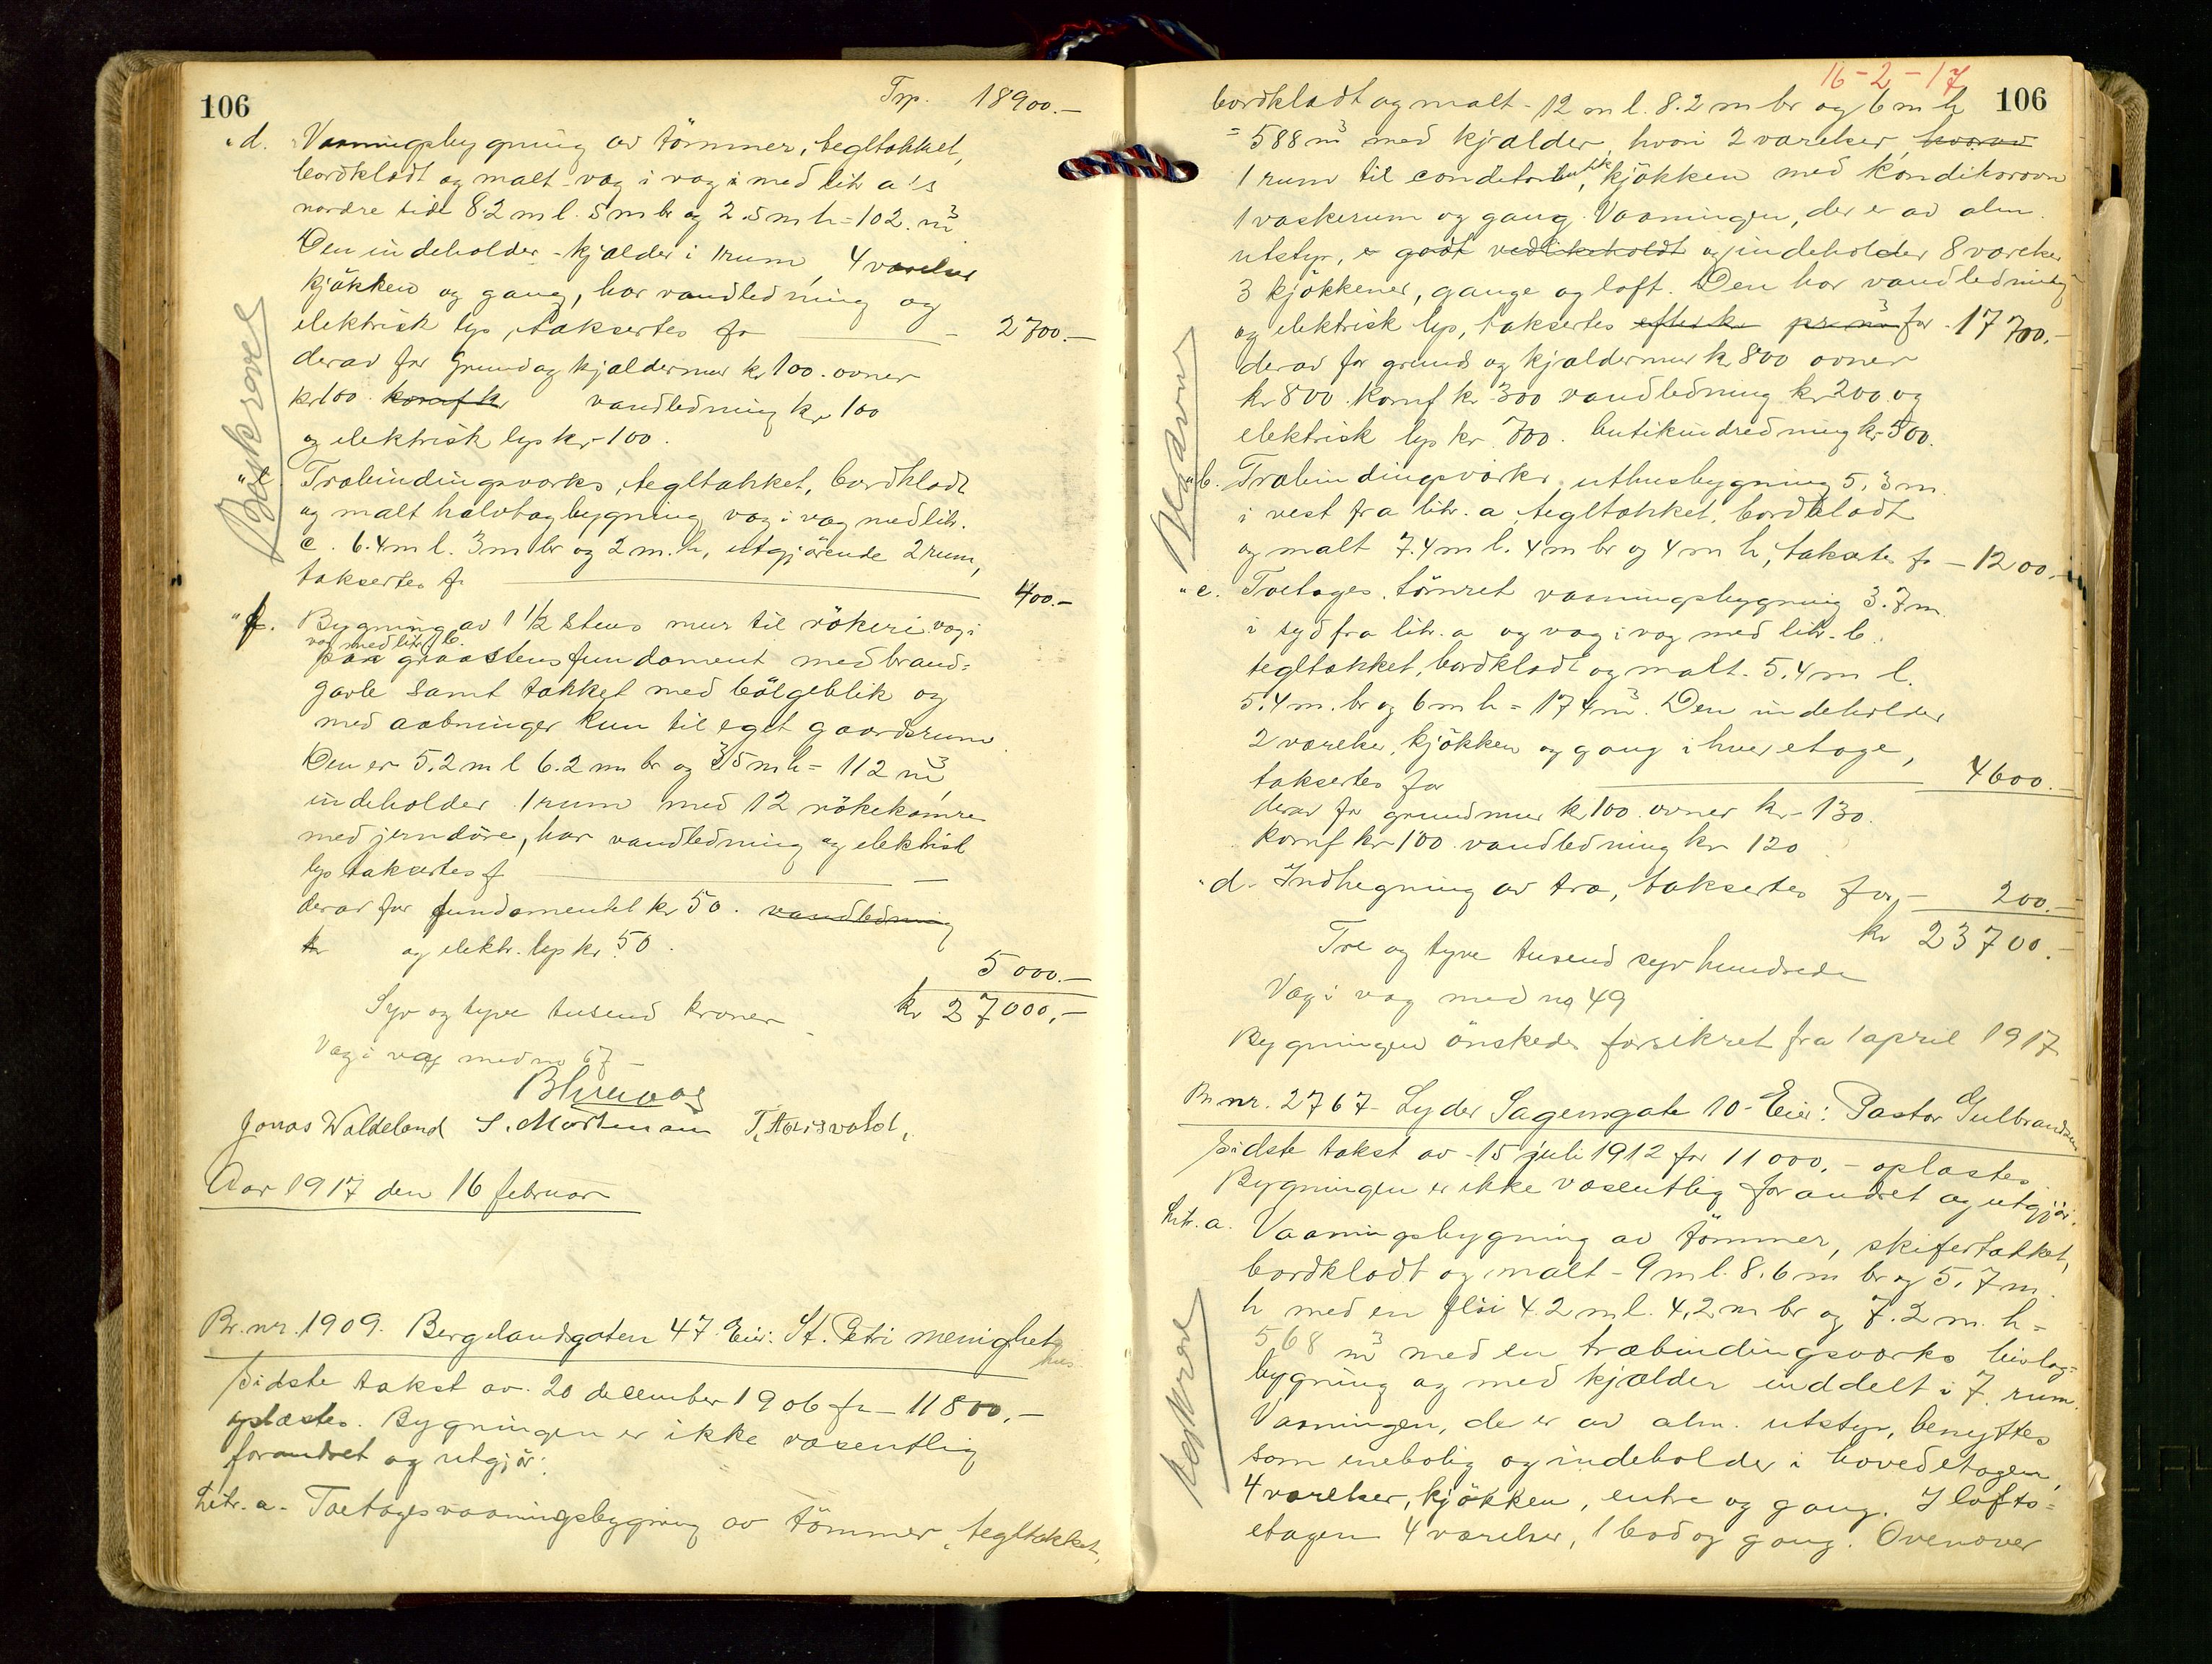 106
Trp. 18900.-
"d. Vaaningsbygning av tömmer, tegltækket,
bordklædt og malt væg i væg i med litr a's
nordre side 8.2 m l. 5 m br og 2.5 m h = 102. m³
Den indeholder - kjælder i 1 rum, 4 værelser
kjøkken og gang, har vandledning og
elektrisk lys, taksertes for - 2700.-
derav for Grund og kjældermur kr 100. ovner
kr 100. komf kr vandledning kr 100
og elektrisk lys kr 100.
"e. Træbindingsværks, tegltækket, bordklædt
og malt halvtagbygning væg i væg med litr.
c. 6.4 m l. 3 m br og 2 m. h, utgjørende 2 rum,
taksertes f. 400.-
"f. Bygning av 1 1/2 stens mur til rökeri væg i
væg med litr b.
paa graastensfundament med brand=
gavle samt tækket med bölgeblik og
med aabninger kun til eget gaardsrum.
Den er 5.2 m l 6.2 m br og 3.5 m h = 112 m³,
indeholder 1 rum med 12 rökekamre
med jerndöre, har vandledning og elektrisk
lys taksertes f. -
derav for fundamentet kr 50. vandledning
kr og elektr. lys kr 50.
5000.-
Syv og tyve tusend kroner kr 27000,-
Væg i væg med no 67
Jonas Waldeland S. Mortensen
Aar 1917 den 16 februar
Br. nr. 1909. Bergelandsgaten 47. Eier: St. Petri menighets
hus
Sidste takst av. 20 december 1906 for - 11800,-
oplæstes. Bygningen er ikke væsentlig
forandret og utgjör:
Litr. a. Toetages vaaningsbygning av tömmer, tegltækket,
16-2-17
106
bordklædt og malt - 12 m l. 8.2 m br og 6 m h
= 588 m³ med kjælder, hvori 2 værelser, hvorav
1 rum til conditorbutik, kjökken med konditorovn
1 vaskerum og gang. Vaaningen, der er av alm.
utstyr, er godt vedlikeholdt og indeholder 8 værelser
3 kjökkener, gange og loft. Den har vandledning
og elektrisk lys, taksertes efter kr pr m³ for 17700.-
derav for grund og kjældermur kr 800 ovner
kr 800. Komf kr 300 vandledning kr 200 og
elektrisk lys kr 700. butikindredning kr 500.
"b. Træbindingsværks uthusbygning 5,3 m
i vest fra litr. a, tegltækket, bordklædt
og malt 7.4 m l. 4 m br og 4 m h, taksertes for - 1200.-
"c. Toetages, tömret vaaningsbygning 3.7 m
i syd fra litr. a og væg i væg med litr. b.
tegltækket, bordklædt og malt. 5.4 m l.
5.4 m. br og 6 m h = 174 m³. Den indeholder
2 værelser, kjökken og gang i hver etage,
taksertes for 4600.-
derav for grundmur kr 100. ovner kr - 130.
Komf kr 100 vandledning kr 120.
"d. Indhegning av træ, taksertes for,- 200.-
kr 23700.-
Tre og tyve tusend syv hundrede
Væg i væg med no 49
Bygningen önskedes forsikret fra 1 april 1917
Br nr. 2767 - Lyder Sagensgate 10 - Eier: Pastor Gulbrandsen
Sidste takst av - 15 juli 1912 for 11000.- oplæstes.
Bygningen er ikke væsentlig forandret og utgjör:
Litr. a. Vaaningsbygning av tömmer, skifertækket,
bordklædt og malt - 9 m l. 8.6 m br og 5.7 m
h med en flöi 4.2 m l. 4,2 m br og 7.2 m. h =
568 m³ med en træbindingsværks bislag=
bygning og med kjælder inddelt i 7 rum.
Vaaningen, der er av alm. utstyr, benyttes
som enebolig og indeholder i hovedetagen,
4 værelser, kjökken, entre og gang. I lofts=
etagen 4 værelser, 1 bod og gang. Ovenover